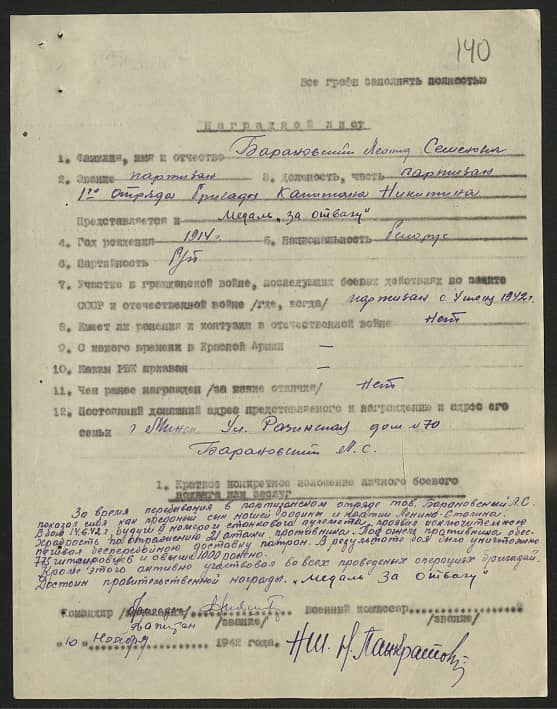 140
Все графы заполнять полностью
Наградной лист
1. Фамилия, имя и отчество Барановский Леонид Семенов
2. Звание партизан 3. Должность, часть партизан
1го отряда бригады Капитана Никитина
Представляется к Медаль „За отвагу"
4. Год рождения 1914г. 5. Национальность белорус
6. Партийность б/п
7. Участие в гражданской войне, последующих боевых действиях по защите
СССР и отечественной войне /где, когда/ партизан с 1942г.
8. Имеет ли ранения и контузии в отечественной войне нет
9. С какого времени в Красной Армии –
10. Каким РВК призван –
11. Чем ранее награжден /за какие отличия/ нет
12. Постоянный домашний адрес представляемого к награждению и адрес его
семьи г Минск Ул. Разинская дом №70
Барановский Л.С.
1. Краткое конкретное изложение личного боевого
подвига или заслуг
За время пребывания в партизанском отряде тов. Барановский Л.С.
показал себя как преданный сын нашей родины и партии Ленина-Сталина.
В бою 14.6.42г. будучи 2 номером станкового пулемета, проявил исключительную
храбрость по отражению 21 атаки противника. Под огнем противника обес-
печивал бесперебойную доставку патрон. В результате боя было уничтожено
775 гитлеровцев и свыше 1000 ранено.
Кроме этого активно участвовал во всех проведенных операциях бригадой.
Достоин правительственной награды „Медаль За Отвагу"
Командир /бригады Военный комиссар
Капитан /звание/ /звание/
"10" Ноября 1942 года. НШ. Панкратов